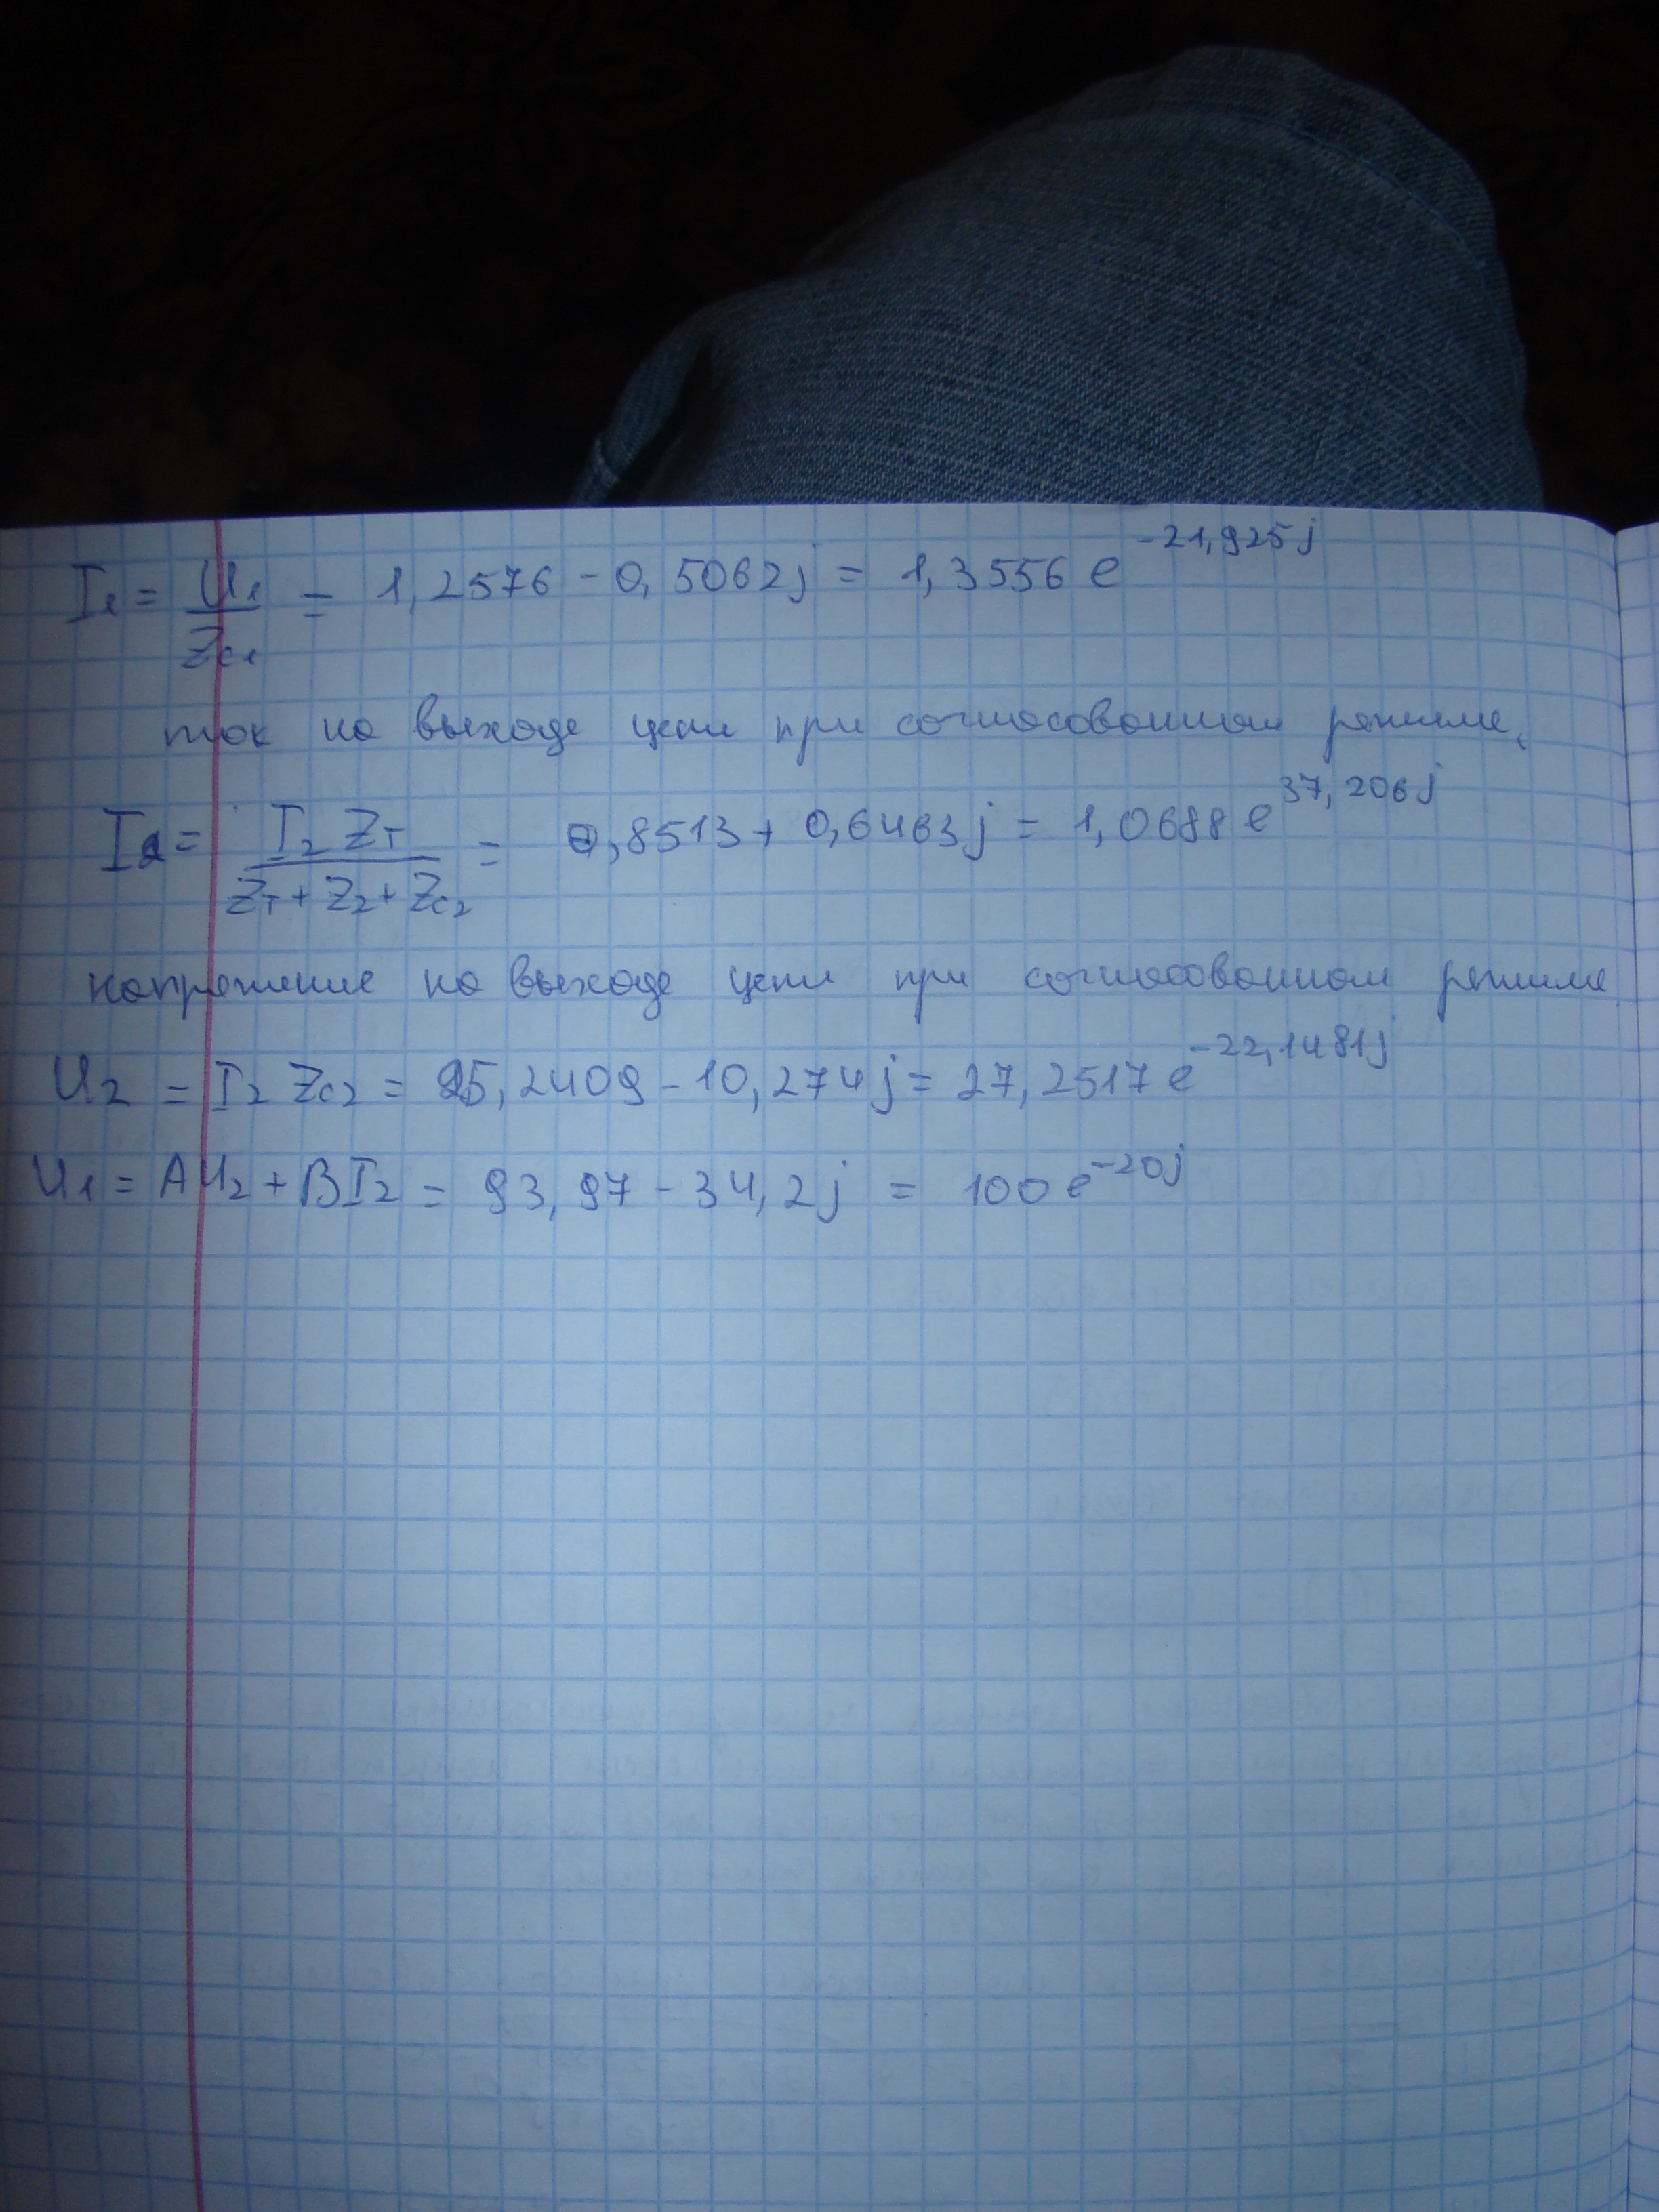 I₁ = U₁ / Zc₁ = 1,2576 - 0,5062j = 1,3556 e^-21,925j
ток на выходе цепи при согласованном режиме,
I₂ = I₂ Zт / Zт + Z₂ + Zc₂ = 0,8513 + 0,6463j = 1,0688 e^37,206j
напряжение на выходе цепи при согласованном режиме
U₂ = I₂ Zc₂ = 25,2409 - 10,274j = 27,2517 e^-22,1481j
U₁ = AU₂ + BI₂ = 93,97 - 34,2j = 100 e^-20j